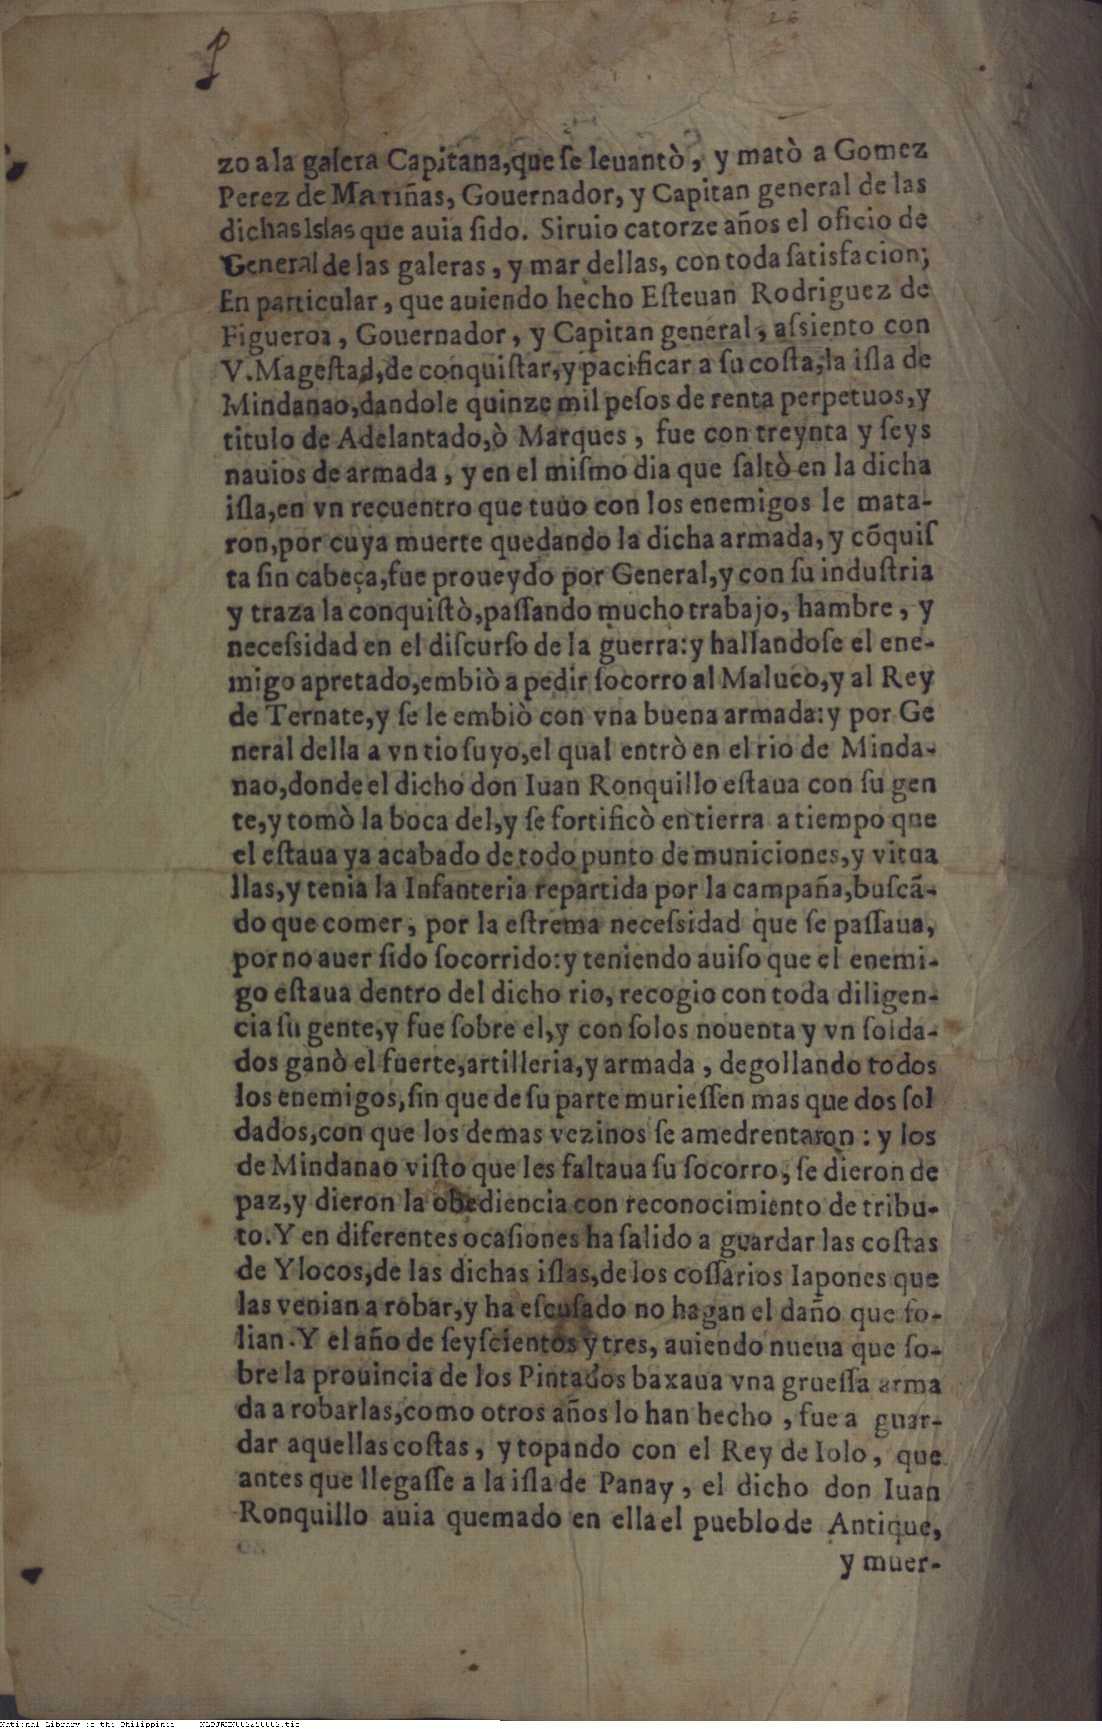 zo a la galera Capitana, que ſe leuantò, y matò a Gomez
Perez de Mariñas, Gouernador, y Capitan general de las
dichas Islas que auia ſido. Siruio catorze años el oficio de
General de las galeras, y mar dellas, con toda ſatisfacion;
En particular, que auiendo hecho Eſteuan Rodriguez de
Figueroa, Gouernador, y Capitan general, aſsiento con
V. Mageſtad, de conquiſtar, y pacificar a ſu coſta, la iſla de
Mindanao, dandole quinze mil peſos de renta perpetuos, y
titulo de Adelantado, ò Marques, fue con treynta y ſeys
nauios de armada, y en el miſmo dia que ſaltò en la dicha
iſla, en vn recuentro que tuuo con los enemigos le mata-
ron, por cuya muerte quedando la dicha armada, y cõquiſ
ta ſin cabeça, fue proueydo por General, y con ſu induſtria
y traza la conquiſtò, paſſando mucho trabajo, hambre, y
neceſsidad en el diſcurſo de la guerra: y hallandoſe el ene-
migo apretado, embiò a pedir ſocorro al Maluco, y al Rey
de Ternate, y ſe le embiò con vna buena armada: y por Ge
neral della a vn tio ſuyo, el qual entrò en el rio de Minda-
nao, donde el dicho don Iuan Ronquillo eſtaua con ſu gen
te, y tomò la boca del, y ſe fortificò en tierra a tiempo que
el eſtaua ya acabado de todo punto de municiones, y vitua
llas, y tenia la Infanteria repartida por la campaña, buſcã-
do que comer, por la eſtrema neceſsidad que ſe paſſaua,
por no auer ſido ſocorrido: y teniendo auiſo que el enemi-
go eſtaua dentro del dicho rio, recogio con toda diligen-
cia ſu gente, y fue ſobre el, y con ſolos nouenta y vn ſolda-
dos ganò el fuerte, artilleria, y armada, degollando todos
los enemigos, ſin que de ſu parte murieſſen mas que dos ſol
dados, con que los demas vezinos ſe amedrentaron: y los
de Mindanao viſto que les faltaua ſu ſocorro, ſe dieron de
paz, y dieron la obediencia con reconocimiento de tribu-
to. Y en diferentes ocaſiones ha ſalido a guardar las coſtas
de Ylocos, de las dichas iſlas, de los coſſarios Iapones que
las venian a robar, y ha eſcuſado no hagan el daño que ſo-
lian. Y el año de ſeyſcientos y tres, auiendo nueua que ſo-
bre la prouincia de los Pintados baxaua vna grueſſa arma
da a robarlas, como otros años lo han hecho, fue a guar-
dar aquellas coſtas, y topando con el Rey de Iolo, que
antes que llegaſſe a la iſla de Panay, el dicho don Iuan
Ronquillo auia quemado en ella el pueblo de Antique,
y muer-